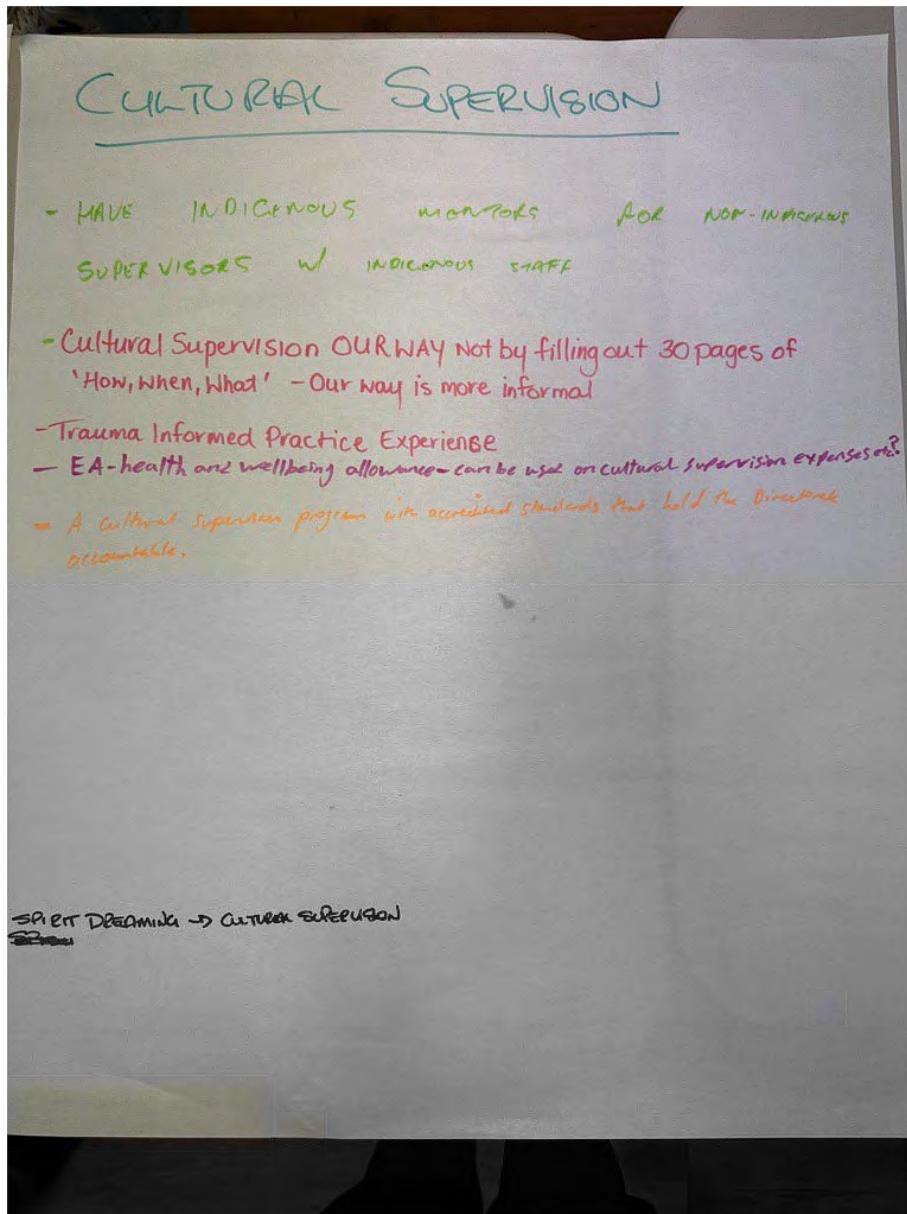 CULTURAL SUPERVISION
- HAVE INDIGENOUS MENTORS FOR NON-INDIGENOUS
SUPERVISORS W/ INDIGENOUS STAFF
- Cultural Supervision OUR WAY Not by filling out 30 pages of
'How, When, What' - Our way is more informal
- Trauma Informed Practice Experiense
- EA-health and wellbeing allowance - can be used on cultural supervision expenses etc?
- A cultural supervision program with accredited standards that hold the Directorate
accountable.
SPIRIT DREAMING → CULTURAL SUPERVISION